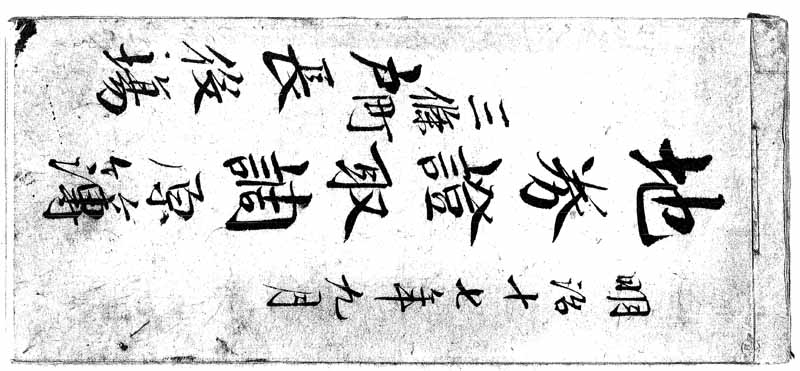 明治十七年九月
地券證取調原簿
三條町
戸長役場